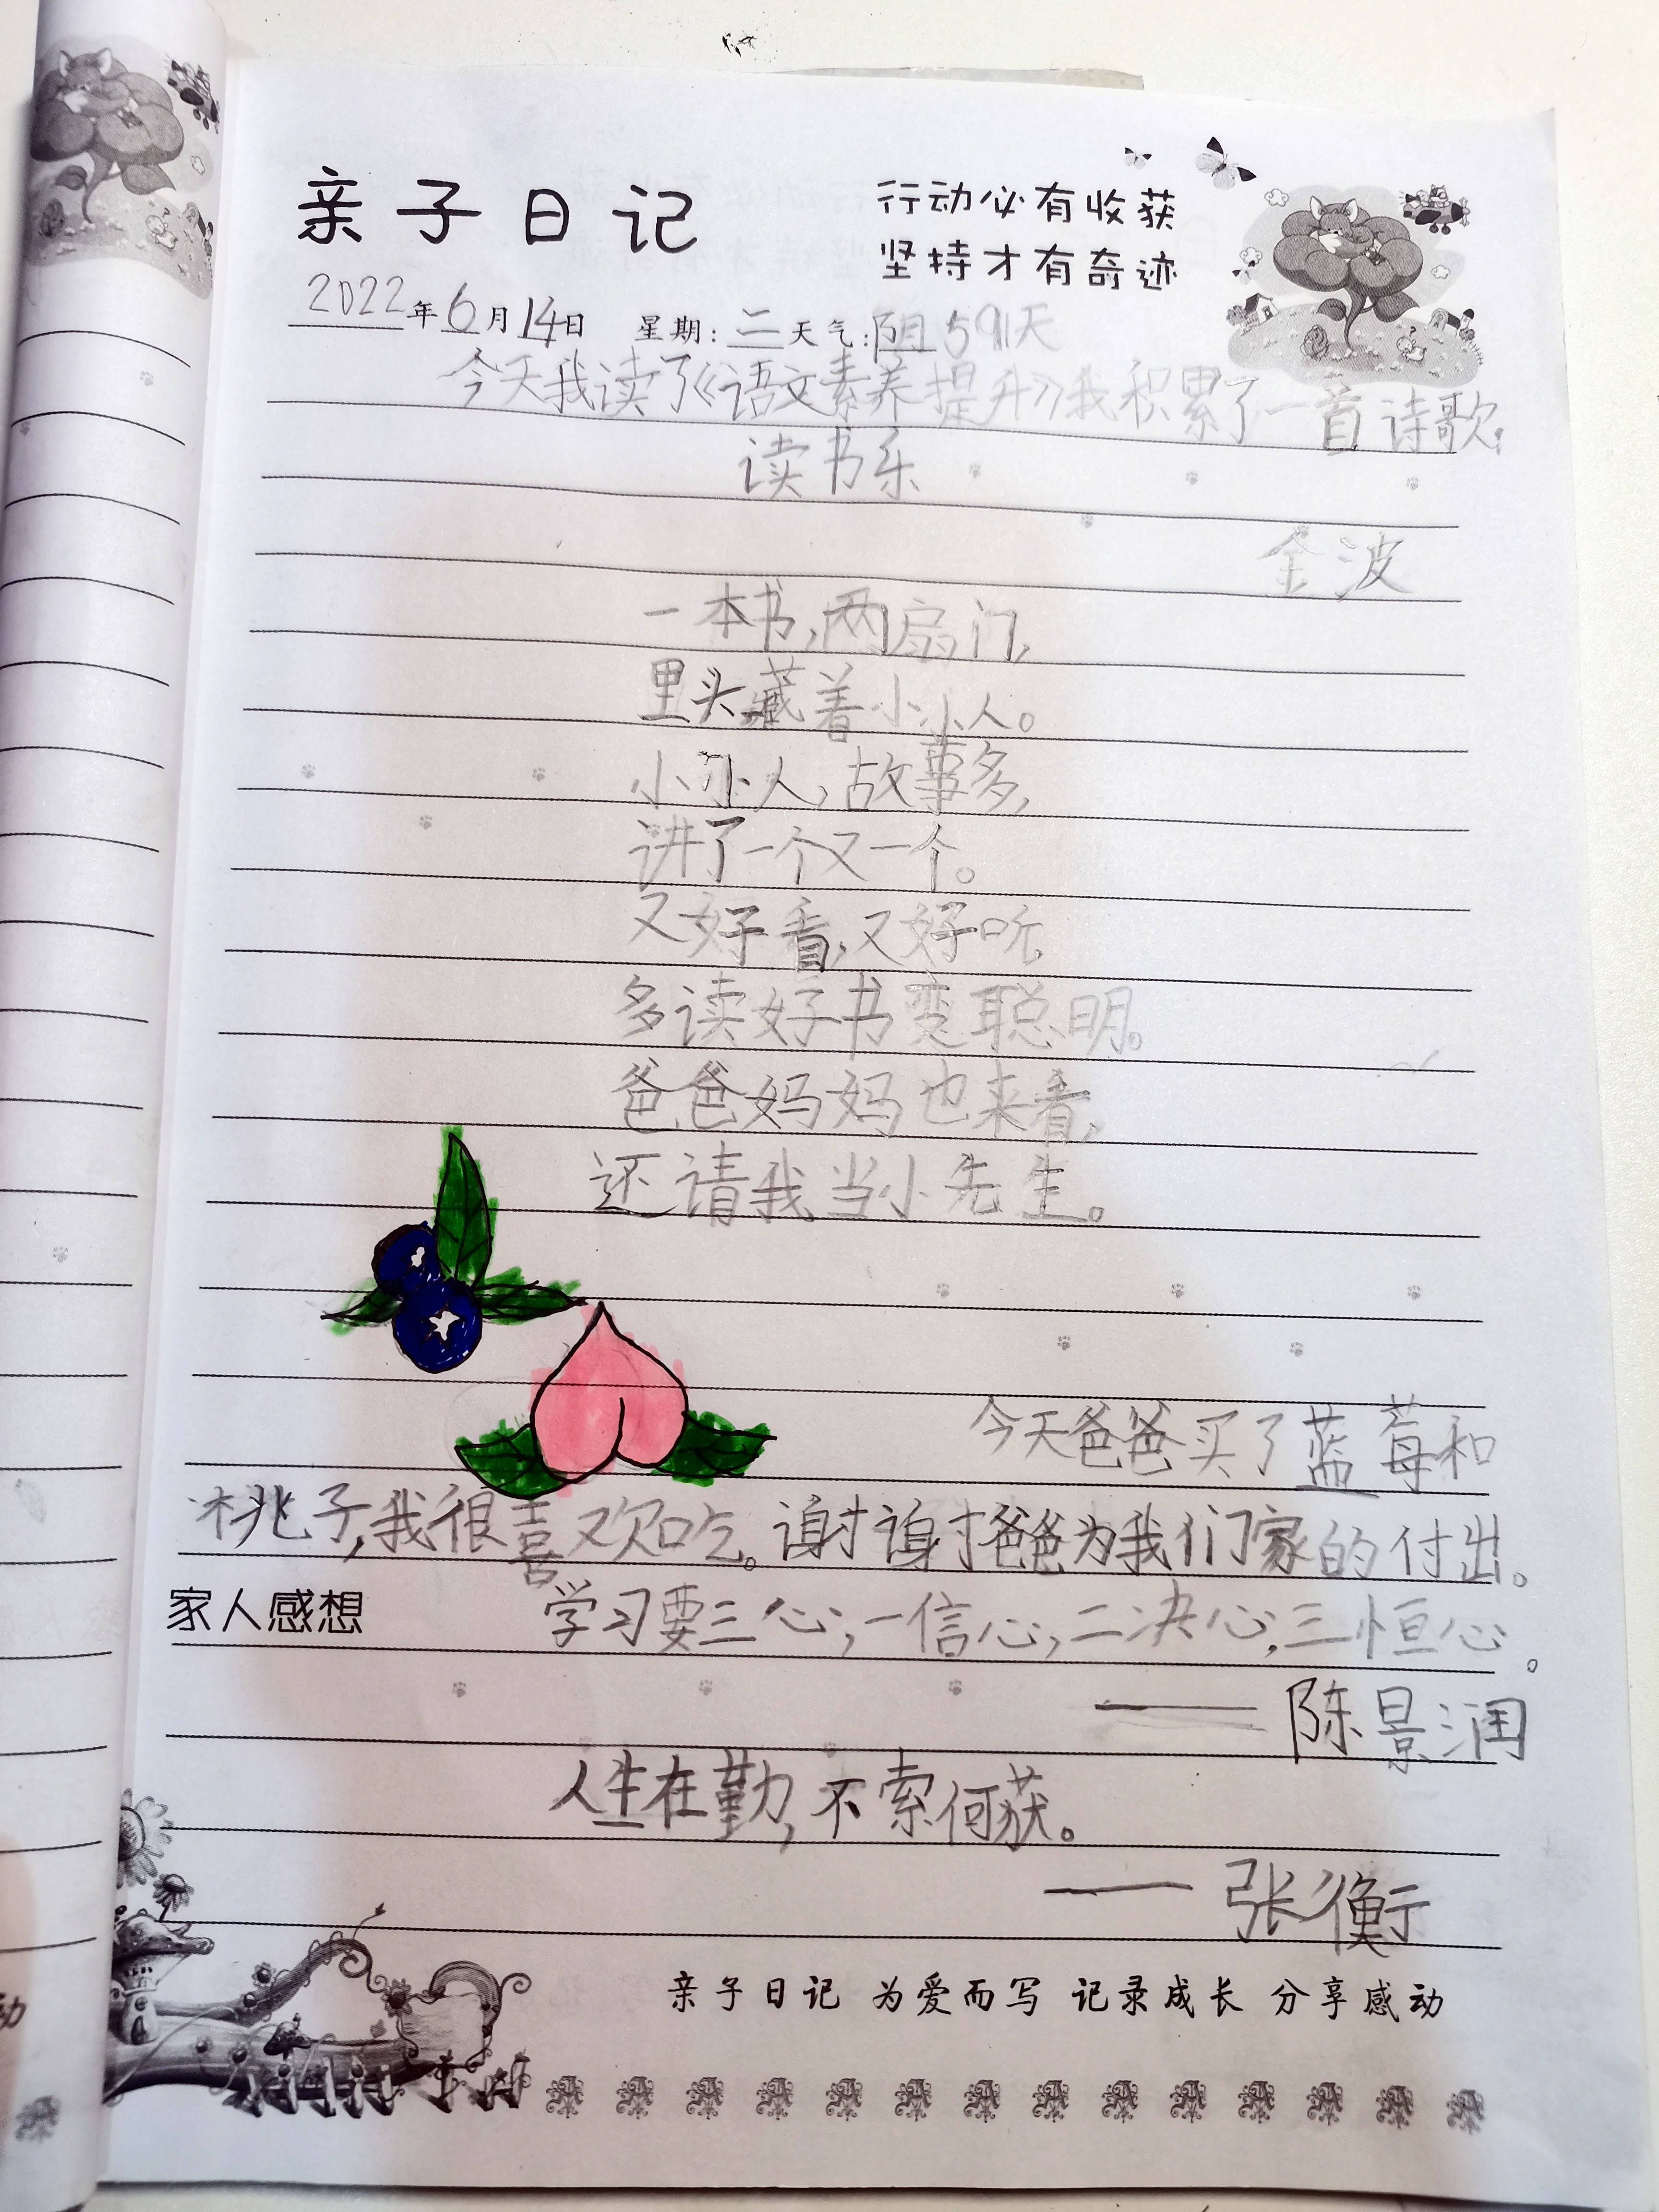 亲子日记
行动必有收获
坚持才有奇迹
2022年6月14日 星期:二 天气:阴 591天
今天我读了《语文素养提升》我积累了一首诗歌:
读书乐
金波
一本书,两扇门,
里头藏着小小人。
小小人,故事多,
讲了一个又一个。
又好看,又好听,
多读好书变聪明。
爸爸妈妈也来看,
还请我当小先生。
今天爸爸买了蓝莓和
桃子,我很喜欢吃。谢谢爸爸为我们家的付出。
家人感想 学习要三心,一信心,二决心,三恒心。
——陈景润
人生在勤,不索何获。
——张衡
亲子日记 为爱而写 记录成长 分享感动
动